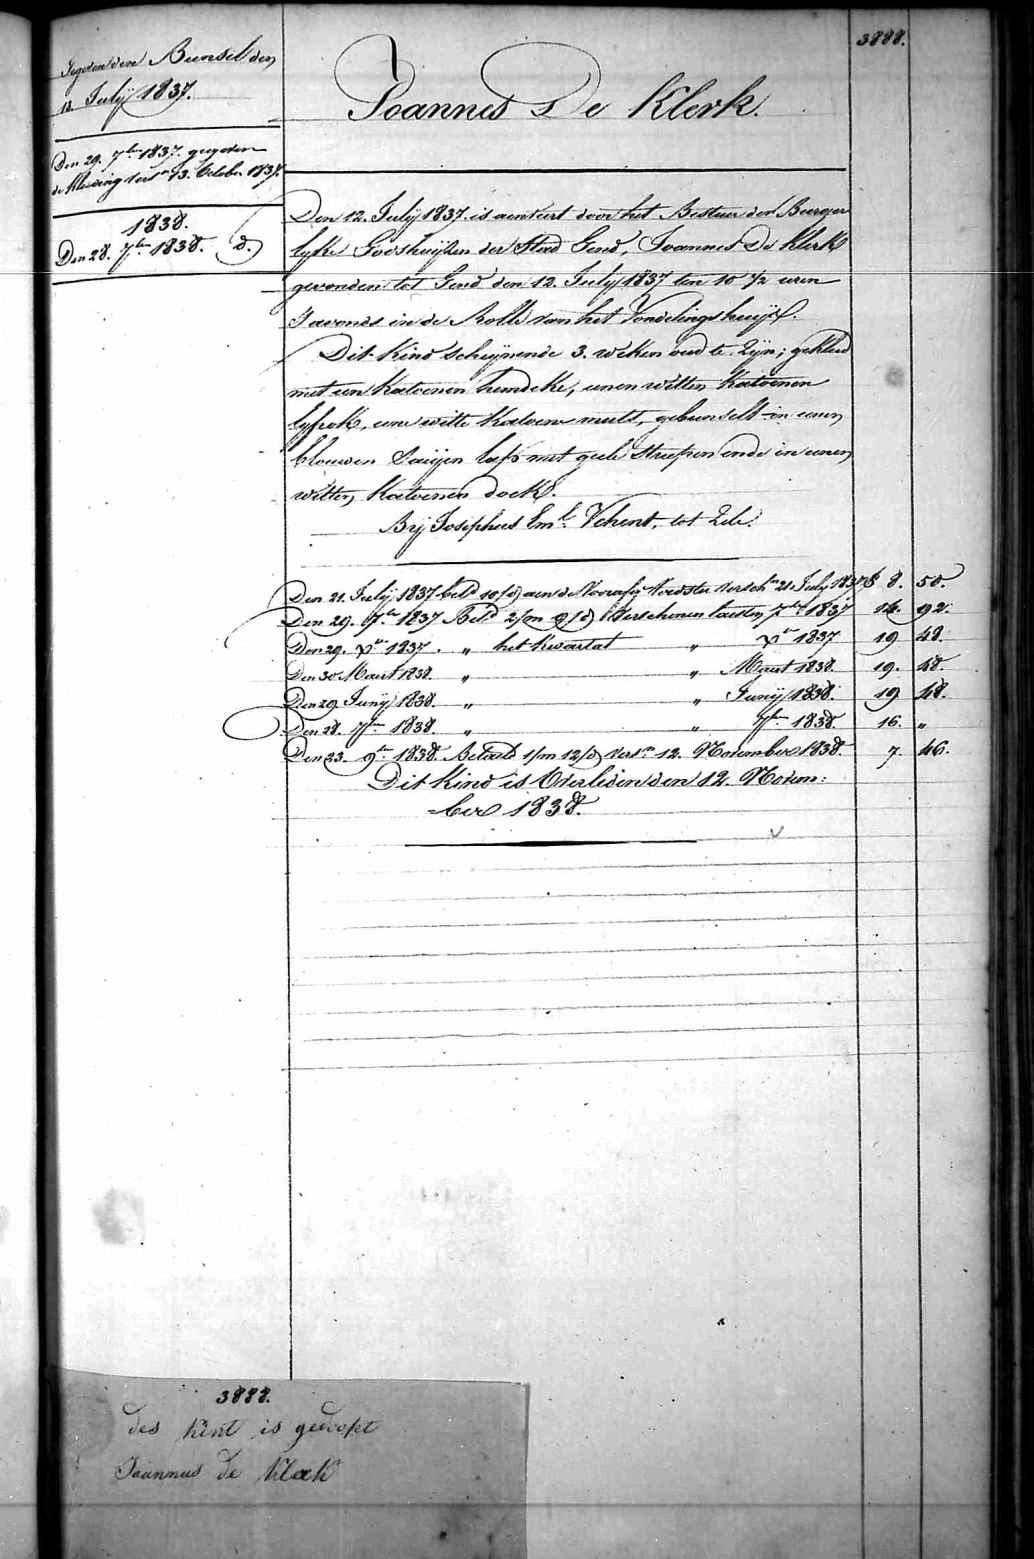 3888.
Gegeven den Bunsel den
12 Julij 1837.
Den 29. 7ber 1837. gegeven
de kleeding vers.n 13. October 1837.
1838.
Den 28. 7ber 1838. d.
Joannes De Klerk.
Den 12. Julij 1837 is aenveert door het Bestuer der Burger
lyke Godshuijzen der Stad Gend, Joannes De Klerk
gevonden tot Gend den 12. Julij 1837 ten 10 1/2 uren
S'avonds in de Rolle van het Vondelingshuijs.
Dit Kind schynende 3. weken oud te Zyn; gekleed
met een Katoenen hemdeke, eenen witten Katoenen
lyfrok, eene witte Katoene muts, gebunselt in eenen
blauwen Saeijen laps met geele Streepen ende in eenen
witten Katoenen doek.
Bij Josephus Em.l Vehent, tot Zele.
Den 21. Julij 1837 bet.d 10/d aen de Voorafg. Voedster versch.n 21 Julij 1837 f 8. 50.
Den 29. 7ber 1837 Bet.d 2/m 9/d Verschenen laesten 7ber 1837 14. 92.
Den 29. Xber 1837. „ het kwartael „ Xber 1837 19 48.
Den 30 Maert 1838. „ „ Maert 1838. 19. 48.
Den 29 Junij 1838. „ „ Junij 1838. 19 48.
Den 28. 7ber 1838. „ „ 7ber 1838. 16. „
Den 23. 9ber 1838. Betaeld 1/m 12/d vers.n 12. November 1838. 7. 46.
Dit Kind is Overleden den 12. Novem:
=ber 1838.
3888.
des kint is gedoopt
Joannus de Klerk